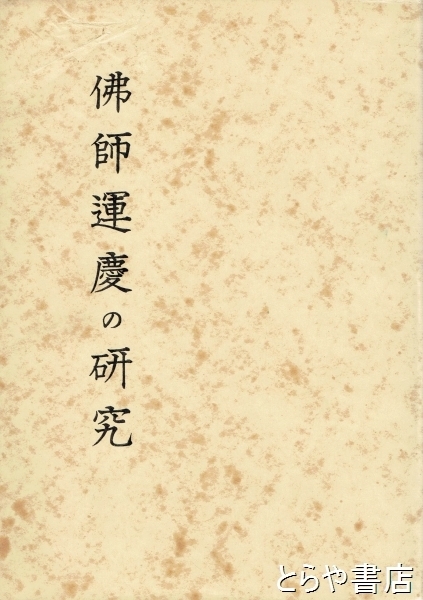 佛師運慶の研究
とらや書店